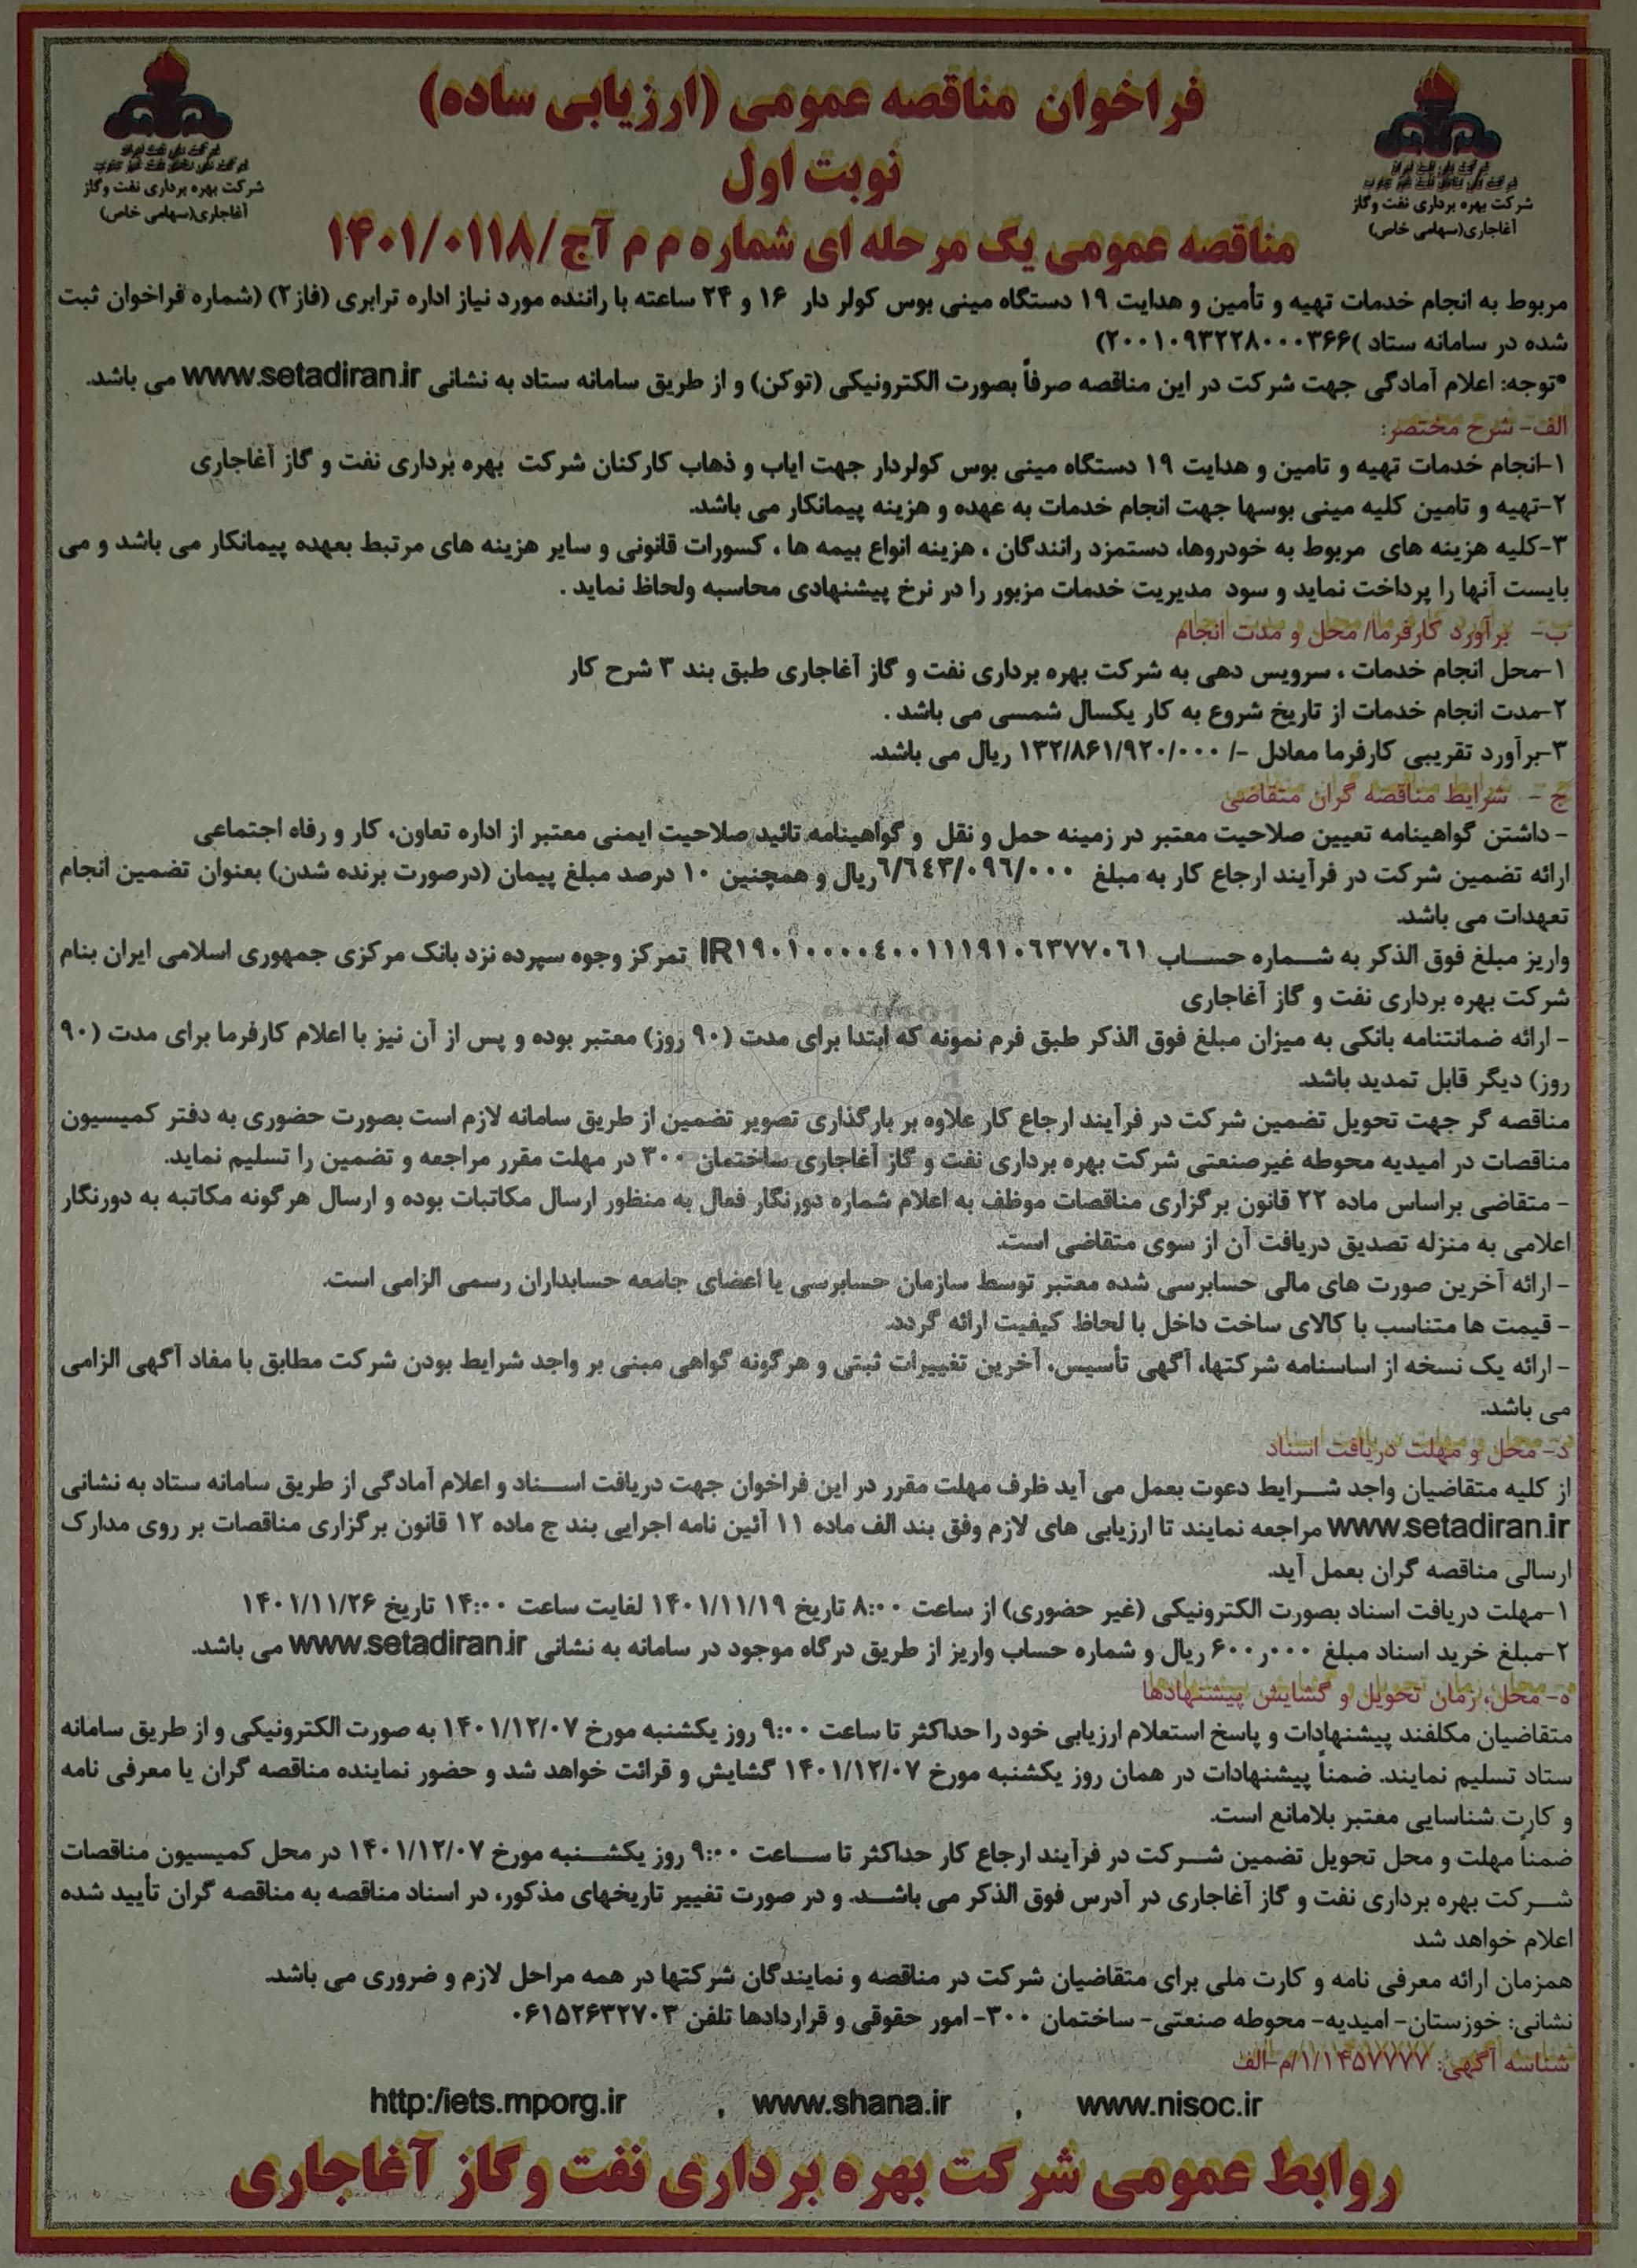 فراخوان مناقصه عمومی (ارزیابی ساده)
نوبت اول
مناقصه عمومی یک مرحله ای شماره م م آج/۱۴۰۱/۰۱۱۸
شرکت بهره برداری نفت وگاز
آغاجاری(سهامی خاص)
شرکت بهره برداری نفت وگاز
آغاجاری(سهامی خاص)
مربوط به انجام خدمات تهیه و تأمین و هدایت ۱۹ دستگاه مینی بوس کولر دار ۱۶ و ۲۴ ساعته با راننده مورد نیاز اداره ترابری (فاز۲) (شماره فراخوان ثبت
شده در سامانه ستاد )۲۰۰۱۰۹۳۲۲۸۰۰۰۳۶۶)
*توجه: اعلام آمادگی جهت شرکت در این مناقصه صرفاً بصورت الکترونیکی (توکن) و از طریق سامانه ستاد به نشانی www.setadiran.ir می باشد.
الف- شرح مختصر:
۱-انجام خدمات تهیه و تامین و هدایت ۱۹ دستگاه مینی بوس کولردار جهت ایاب و ذهاب کارکنان شرکت بهره برداری نفت و گاز آغاجاری
۲-تهیه و تامین کلیه مینی بوسها جهت انجام خدمات به عهده و هزینه پیمانکار می باشد.
۳-کلیه هزینه های مربوط به خودروها، دستمزد رانندگان ، هزینه انواع بیمه ها ، کسورات قانونی و سایر هزینه های مرتبط بعهده پیمانکار می باشد و می
بایست آنها را پرداخت نماید و سود مدیریت خدمات مزبور را در نرخ پیشنهادی محاسبه ولحاظ نماید .
ب- برآورد کارفرما/ محل و مدت انجام
۱-محل انجام خدمات ، سرویس دهی به شرکت بهره برداری نفت و گاز آغاجاری طبق بند ۳ شرح کار
۲-مدت انجام خدمات از تاریخ شروع به کار یکسال شمسی می باشد .
۳-برآورد تقریبی کارفرما معادل -/ ۱۳۲/۸۶۱/۹۲۰/۰۰۰ ریال می باشد.
ج - شرایط مناقصه گران متقاضی
- داشتن گواهینامه تعیین صلاحیت معتبر در زمینه حمل و نقل و گواهینامه تائید صلاحیت ایمنی معتبر از اداره تعاون، کار و رفاه اجتماعی
ارائه تضمین شرکت در فرآیند ارجاع کار به مبلغ ۶/۶٤۳/۰۹۶/۰۰۰ریال و همچنین ۱۰ درصد مبلغ پیمان (درصورت برنده شدن) بعنوان تضمین انجام
تعهدات می باشد.
واریز مبلغ فوق الذکر به شـماره حسـاب IR۱۹۰۱۰۰۰۰٤۰۰۱۱۱۹۱۰۶۳۷۷۰۶۱ تمرکز وجوه سپرده نزد بانک مرکزی جمهوری اسلامی ایران بنام
شرکت بهره برداری نفت و گاز آغاجاری
- ارائه ضمانتنامه بانکی به میزان مبلغ فوق الذکر طبق فرم نمونه که ابتدا برای مدت (۹۰ روز) معتبر بوده و پس از آن نیز با اعلام کارفرما برای مدت (۹۰
روز) دیگر قابل تمدید باشد.
مناقصه گر جهت تحویل تضمین شرکت در فرآیند ارجاع کار علاوه بر بارگذاری تصویر تضمین از طریق سامانه لازم است بصورت حضوری به دفتر کمیسیون
مناقصات در امیدیه محوطه غیرصنعتی شرکت بهره برداری نفت و گاز آغاجاری ساختمان ۳۰۰ در مهلت مقرر مراجعه و تضمین را تسلیم نماید.
- متقاضی براساس ماده ۲۲ قانون برگزاری مناقصات موظف به اعلام شماره دورنگار فعال به منظور ارسال مکاتبات بوده و ارسال هرگونه مکاتبه به دورنگار
اعلامی به منزله تصدیق دریافت آن از سوی متقاضی است.
- ارائه آخرین صورت های مالی حسابرسی شده معتبر توسط سازمان حسابرسی یا اعضای جامعه حسابداران رسمی الزامی است.
- قیمت ها متناسب با کالای ساخت داخل با لحاظ کیفیت ارائه گردد.
- ارائه یک نسخه از اساسنامه شرکتها، آگهی تأسیس، آخرین تغییرات ثبتی و هرگونه گواهی مبنی بر واجد شرایط بودن شرکت مطابق با مفاد آگهی الزامی
می باشد.
د- محل و مهلت دریافت اسناد
از کلیه متقاضیان واجد شـرایط دعوت بعمل می آید ظرف مهلت مقرر در این فراخوان جهت دریافت اسـناد و اعلام آمادگی از طریق سامانه ستاد به نشانی
www.setadiran.ir مراجعه نمایند تا ارزیابی های لازم وفق بند الف ماده ۱۱ آئین نامه اجرایی بند ج ماده ۱۲ قانون برگزاری مناقصات بر روی مدارک
ارسالی مناقصه گران بعمل آید.
۱-مهلت دریافت اسناد بصورت الکترونیکی (غیر حضوری) از ساعت ۸:۰۰ تاریخ ۱۴۰۱/۱۱/۱۹ لغایت ساعت ۱۴:۰۰ تاریخ ۱۴۰۱/۱۱/۲۶
۲-مبلغ خرید اسناد مبلغ ۶۰۰ر۰۰۰ ریال و شماره حساب واریز از طریق درگاه موجود در سامانه به نشانی www.setadiran.ir می باشد.
ه- محل، زمان تحویل و گشایش پیشنهادها
متقاضیان مکلفند پیشنهادات و پاسخ استعلام ارزیابی خود را حداکثر تا ساعت ۹:۰۰ روز یکشنبه مورخ ۱۴۰۱/۱۲/۰۷ به صورت الکترونیکی و از طریق سامانه
ستاد تسلیم نمایند. ضمناً پیشنهادات در همان روز یکشنبه مورخ ۱۴۰۱/۱۲/۰۷ گشایش و قرائت خواهد شد و حضور نماینده مناقصه گران یا معرفی نامه
و کارت شناسایی معتبر بلامانع است.
ضمناً مهلت و محل تحویل تضمین شـرکت در فرآیند ارجاع کار حداکثر تا سـاعت ۹:۰۰ روز یکشـنبه مورخ ۱۴۰۱/۱۲/۰۷ در محل کمیسیون مناقصات
شـرکت بهره برداری نفت و گاز آغاجاری در آدرس فوق الذکر می باشـد. و در صورت تغییر تاریخهای مذکور، در اسناد مناقصه به مناقصه گران تأیید شده
اعلام خواهد شد
همزمان ارائه معرفی نامه و کارت ملی برای متقاضیان شرکت در مناقصه و نمایندگان شرکتها در همه مراحل لازم و ضروری می باشد.
نشانی: خوزستان- امیدیه- محوطه صنعتی- ساختمان ۳۰۰- امور حقوقی و قراردادها تلفن ۰۶۱۵۲۶۳۲۷۰۳
شناسه آگهی: ۱/۱۴۵۷۷۷۷/۱/م-الف
www.nisoc.ir , www.shana.ir , http:/iets.mporg.ir
روابط عمومی شرکت بهره برداری نفت وگاز آغاجاری